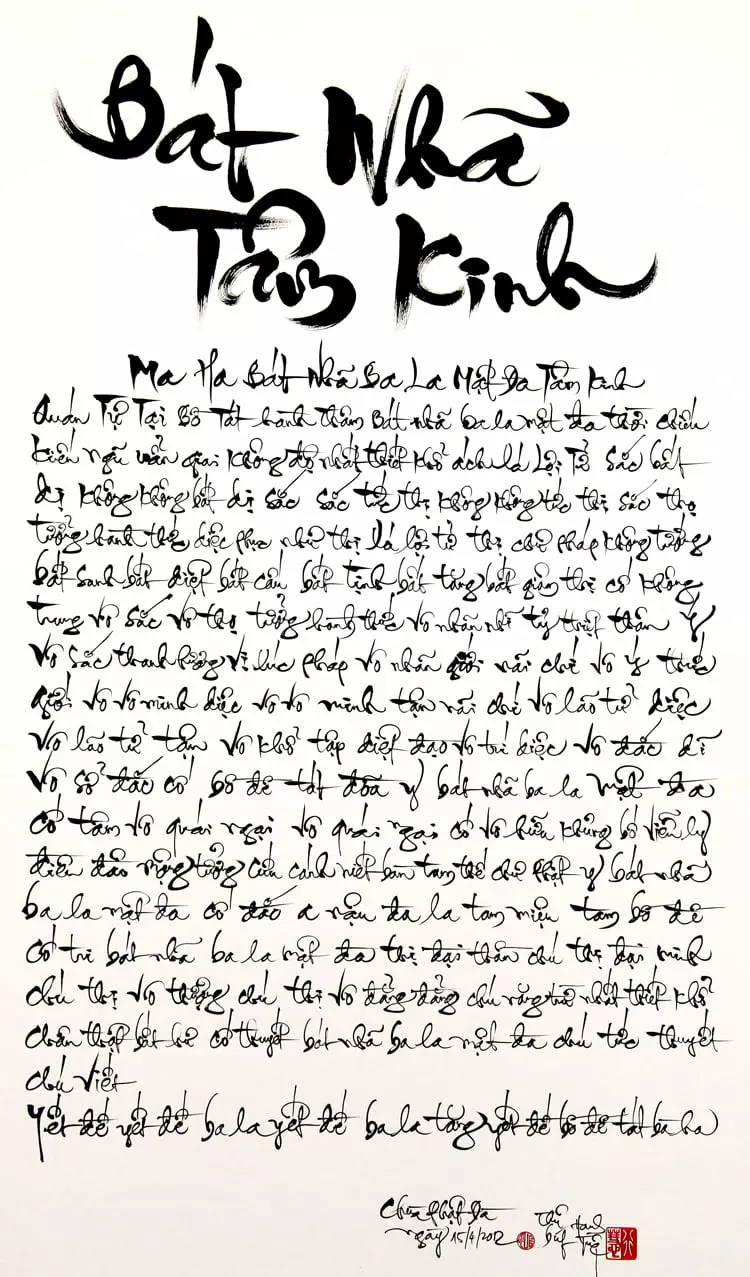 Bát Nhã
Tâm Kinh
Ma Ha Bát Nhã Ba La Mật Đa Tâm Kinh
Quán Tự Tại Bồ Tát hành thâm Bát nhã ba la mật đa thời chiếu
kiến ngũ uẩn giai không độ nhất thiết khổ ách Lá Lợi Tử Sắc bất
dị không không bất dị sắc sắc tức thị không không tức thị sắc thọ
tưởng hành thức diệc phục như thị lá lợi tử thị chư pháp không tướng
bất sanh bất diệt bất cấu bất tịnh bất tăng bất giảm thị cố không
trung vô sắc vô thọ tưởng hành thức vô nhãn nhĩ tỷ thiệt thân ý
vô sắc thanh hương vị xúc pháp vô nhãn giới nãi chí vô ý thức
giới vô vô minh diệc vô vô minh tận nãi chí vô lão tử diệc
vô lão tử tận vô khổ tập diệt đạo vô trí diệc vô đắc dĩ
vô sở đắc cố bồ đề tát đỏa y bát nhã ba la mật đa
cố tâm vô quái ngại vô quái ngại cố vô hữu khủng bố viễn ly
điên đảo mộng tưởng cứu cánh niết bàn tam thế chư Phật y bát nhã
ba la mật đa cố đắc a nậu đa la tam miệu tam bồ đề
cố tri bát nhã ba la mật đa thị đại thần chú thị đại minh
chú thị vô thượng chú thị vô đẳng đẳng chú năng trừ nhất thiết khổ
chân thật bất hư cố thuyết bát nhã ba la mật đa chú tức thuyết
chú viết
Yết đế yết đế ba la yết đế ba la tăng yết đế bồ đề tát bà ha
Chùa Phật Đà
ngày 15/4/2012
Thủ bút Hạnh Tuệ